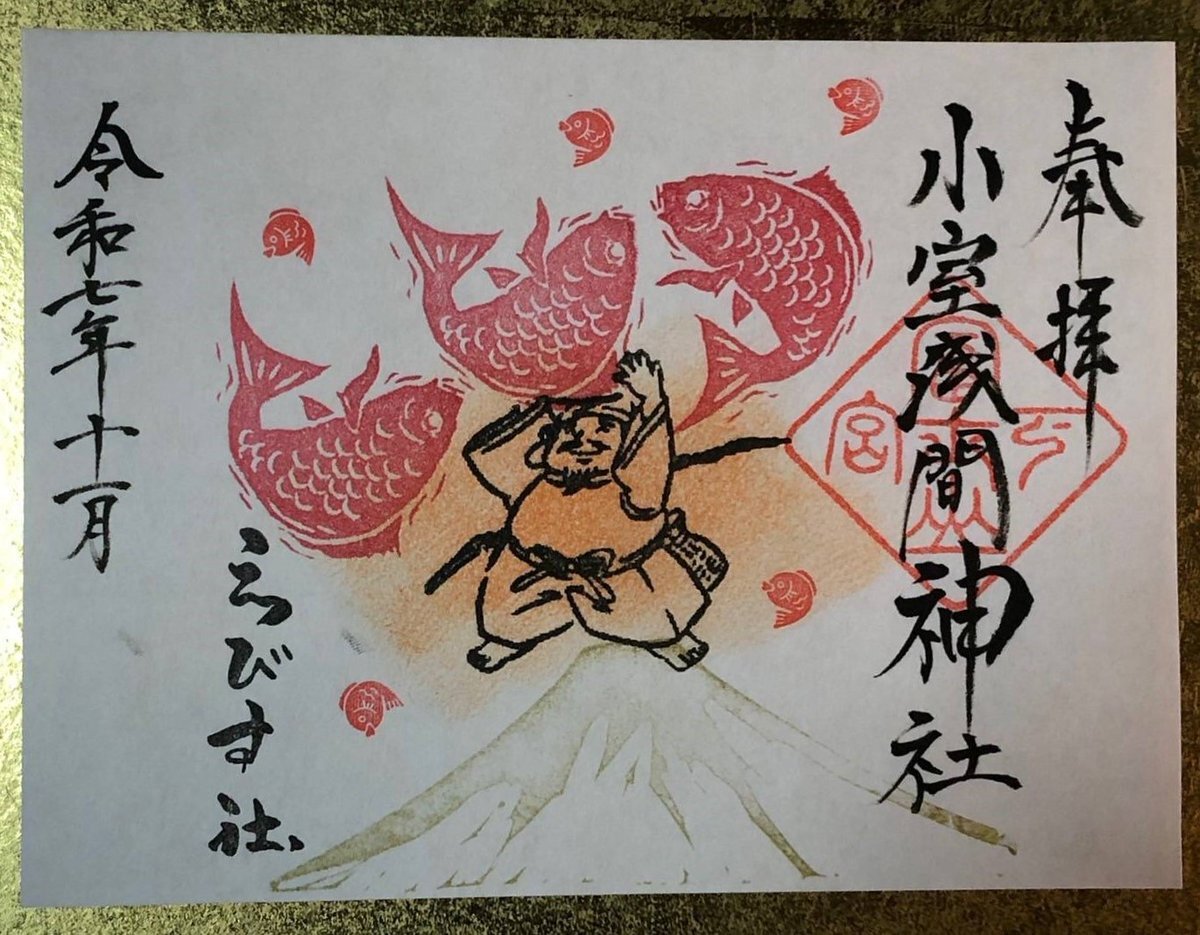 奉拝
小室浅間神社
令和七年十一月
ゑびす社